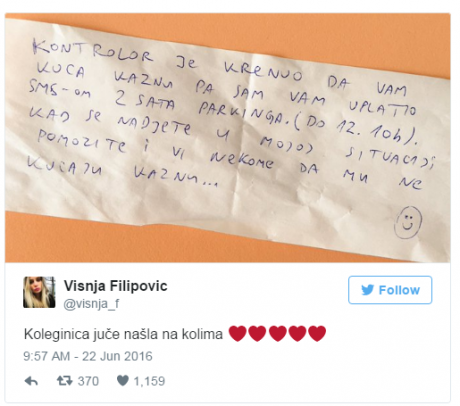 KONTROLOR JE KRENUO DA VAM
KUCA KAZNU PA SAM VAM UPLATIO
SMS-OM 2 SATA PARKINGA. (DO 12.10h).
KAD SE NADJETE U MOJOJ SITUACIJI
POMOZITE I VI NEKOME DA MU NE
KUCAJU KAZNU...
Visnja Filipovic
@visnja_f
Follow
Koleginica juče našla na kolima ❤❤❤❤❤
9:57 AM - 22 Jun 2016
370 1,159